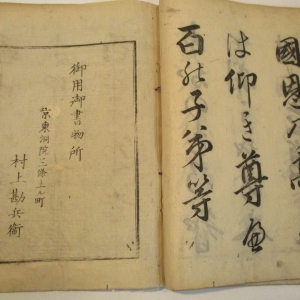 は仰き尊ふ
百の子弟等
御用御書物所
京東洞院三條上ル町
村上勘兵衛